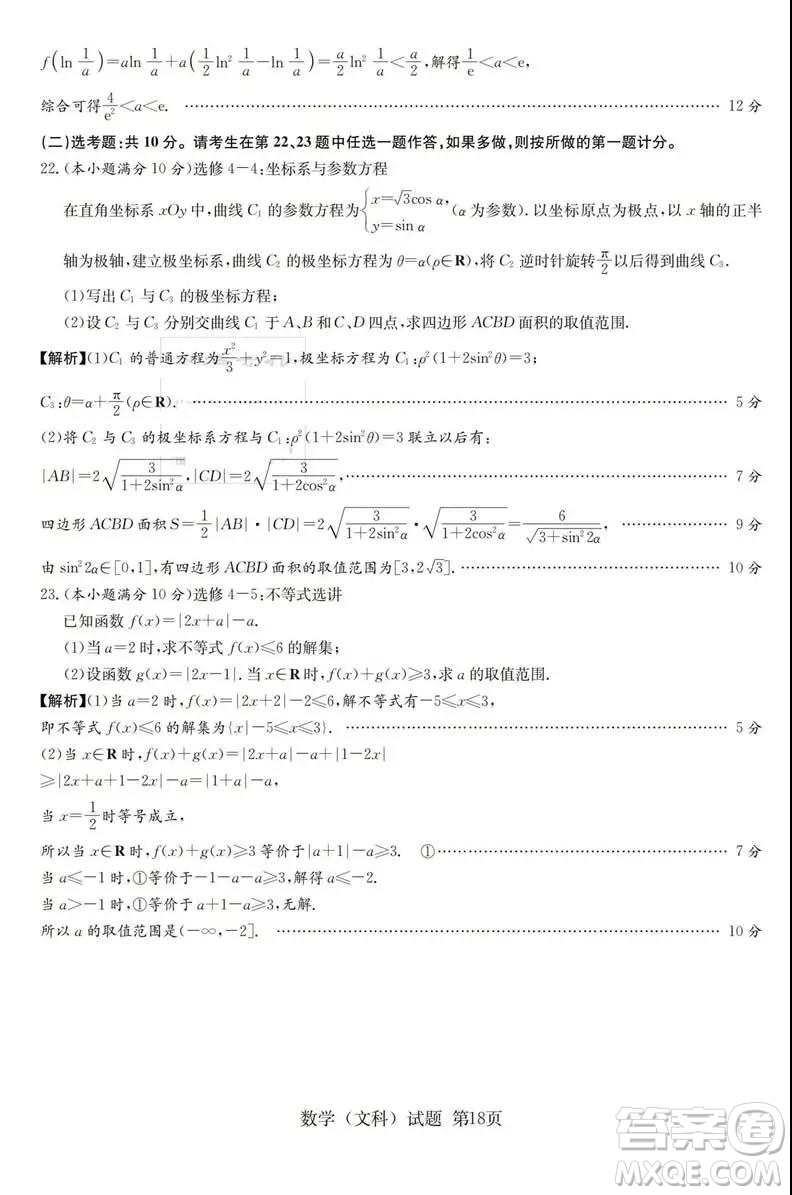 f(ln 1/a)=aln 1/a+a(1/2 ln² 1/a−ln 1/a)=a/2 ln² 1/a<a/2,解得1/e<a<e,
综合可得4/e²<a<e. ………… 12 分
(二)选考题:共 10 分。请考生在第 22、23题中任选一题作答,如果多做,则按所做的第一题计分。
22.(本小题满分 10 分)选修 4-4:坐标系与参数方程
在直角坐标系 xOy 中,曲线 C₁ 的参数方程为{x=√3cos α, y=sin α (α 为参数).以坐标原点为极点,以 x 轴的正半
轴为极轴,建立极坐标系,曲线 C₂ 的极坐标方程为 θ=α(ρ∈R),将 C₂ 逆时针旋转π/2以后得到曲线 C₃.
(1)写出 C₁ 与 C₃ 的极坐标方程;
(2)设 C₂ 与 C₃ 分别交曲线 C₁ 于 A、B 和 C、D 四点,求四边形 ACBD 面积的取值范围.
【解析】(1)C₁ 的普通方程为x²/3+y²=1,极坐标方程为 C₁:ρ²(1+2sin²θ)=3;
C₃:θ=α+π/2(ρ∈R). ………… 5 分
(2)将 C₂ 与 C₃ 的极坐标系方程与 C₁:ρ²(1+2sin²θ)=3 联立以后有:
|AB|=2√(3/(1+2sin²α)),|CD|=2√(3/(1+2cos²α)),………… 7 分
四边形 ACBD 面积 S=1/2|AB|·|CD|=2√(3/(1+2sin²α))·√(3/(1+2cos²α))=6/√(3+sin²2α), ………… 9 分
由 sin²2α∈[0,1],有四边形 ACBD 面积的取值范围为[3,2√3]. ………… 10 分
23.(本小题满分 10 分)选修 4-5:不等式选讲
已知函数 f(x)=|2x+a|-a.
(1)当 a=2 时,求不等式 f(x)≤6 的解集;
(2)设函数 g(x)=|2x-1|.当 x∈R 时,f(x)+g(x)≥3,求 a 的取值范围.
【解析】(1)当 a=2 时,f(x)=|2x+2|-2≤6,解不等式有-5≤x≤3,
即不等式 f(x)≤6 的解集为{x|-5≤x≤3}. ………… 5 分
(2)当 x∈R 时,f(x)+g(x)=|2x+a|-a+|1-2x|
≥|2x+a+1-2x|-a=|1+a|-a,
当 x=1/2时等号成立,
所以当 x∈R 时,f(x)+g(x)≥3 等价于|a+1|-a≥3. ①………… 7 分
当 a≤-1 时,①等价于-a-1-a≥3,解得 a≤-2.
当 a>-1 时,①等价于 a+1-a≥3,无解.
所以 a 的取值范围是(-∞,-2]. ………… 10 分
数学(文科)试题 第18页
答案卷
MXQE.COM